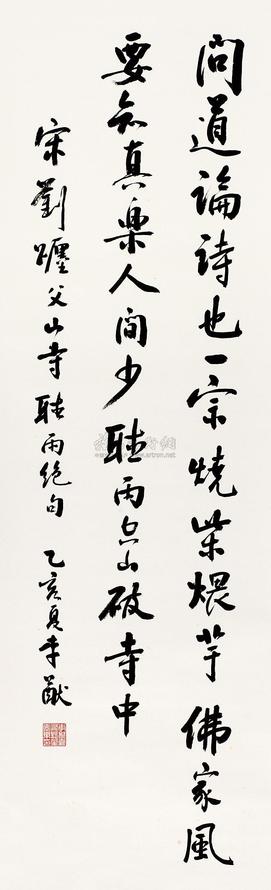 問道論詩也一宗燒柴煨芋佛家風
要知真樂人間少聽雨空山破寺中
宋劉父山寺聽雨絕句 乙亥夏李猷
artron.net